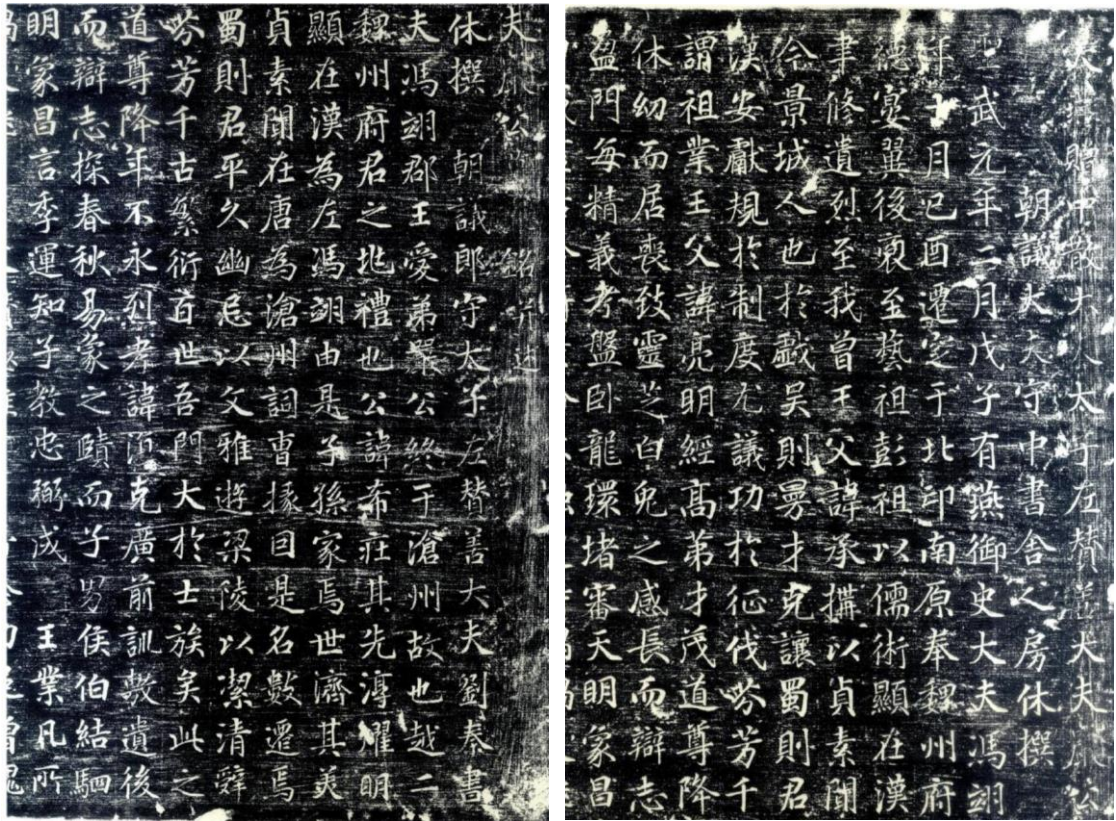 夫臧公 銘并述
休撰 朝議郎守太子左贊善大夫劉秦書
夫馮翊郡王愛弟舉公終于滄州故也越二
魏州府君之兆禮也公諱希莊其先渟耀明
顯在漢為左馮翊由是子孫家焉世濟其美
貞素聞在唐為滄州詞曹掾因是名數遷焉
蜀則君平久幽忌以父雅遊梁陵以潔清辟
芳千古繁衍百世吾門大於士族矣此之
道尊降年不永烈考諱克廣前訓敷遺後
而辯志探春秋易象之賾而子男侯伯結駟
明家昌言季運知子教忠弼成 王業凡所
贈中散大夫太子左贊善大夫臧公
朝議大夫守中書舍人房休撰
聖武元年二月戊子有燕御史大夫馮翊
年十月己酉遷窆于北邙南原奉魏州府
德宴翼後裔至藝祖彭祖以儒術顯在漢
聿修遺烈至我曾王父諱承構以貞素聞
今景城人也於戲吳則曼才克讓蜀則君
漢安獻規於制度尤議功於征伐芳千
謂祖業王父諱亮明經高弟才茂道尊降
休幼而居喪致靈芝白兔之感長而辯志
盈門每精義考盤卧龍環堵審天明家昌